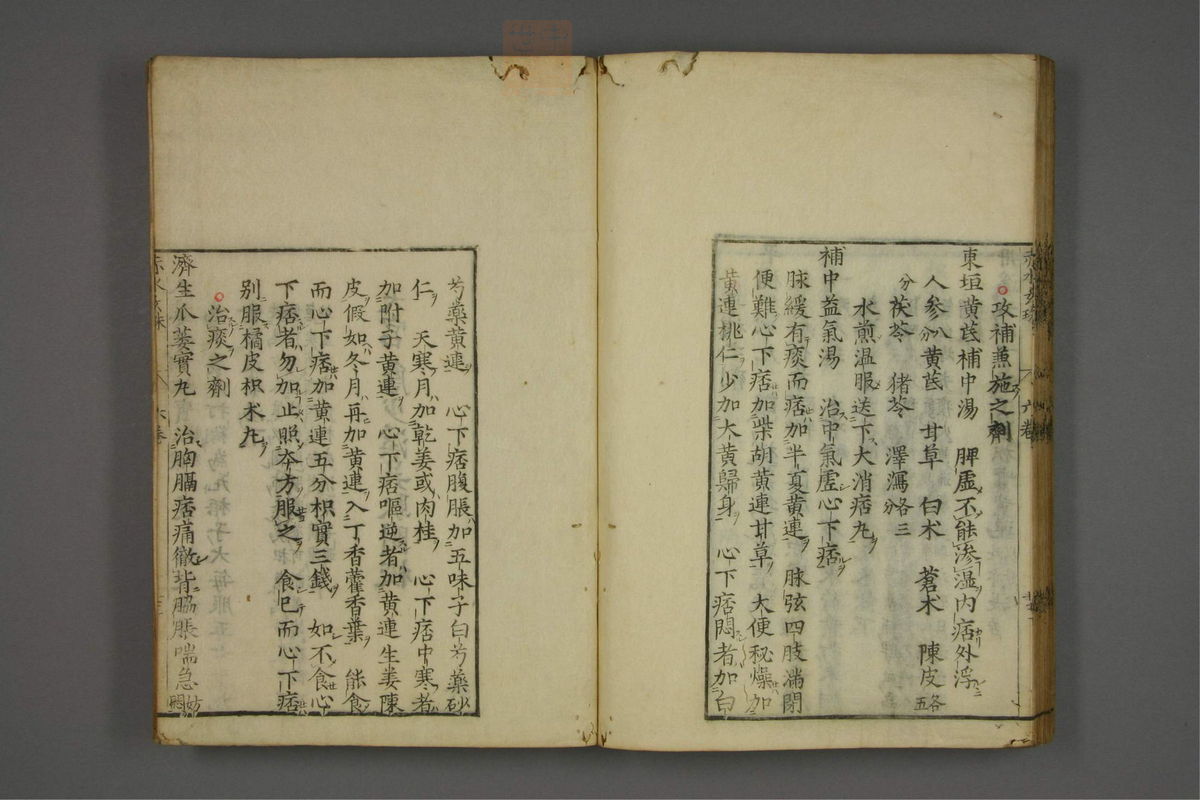 攻補兼施之劑
東垣黄茋補中湯　脾虚不能滲湿内痞外浮
人参 八分 黄茋　甘草　白朮　蒼朮　陳皮 各五
分　茯苓　猪苓　澤瀉 各三分
水煎温服送下大消痞丸
補中益氣湯　治中氣虚心下痞
脉緩有痰而痞加半夏黄連　脉弦四肢満閉
便難心下痞加柴胡黄連甘草　大便秘燥加
黄連桃仁少加大黄歸身　心下痞悶者加白
芍藥黄連　心下痞腹脹加五味子白芍藥砂
仁　天寒月加乾姜或肉桂　心下痞中寒者
加附子黄連　心下痞嘔逆者加黄連生姜陳
皮假如冬月再加黄連入丁香藿香葉　能食
而心下痞加黄連五分枳實三錢　如不食心
下痞者勿加止照本方服之　食已而心下痞
別服橘皮枳朮丸
治痰之劑
濟生瓜蒌實丸　治胸膈痞痛徹背脇脹喘急